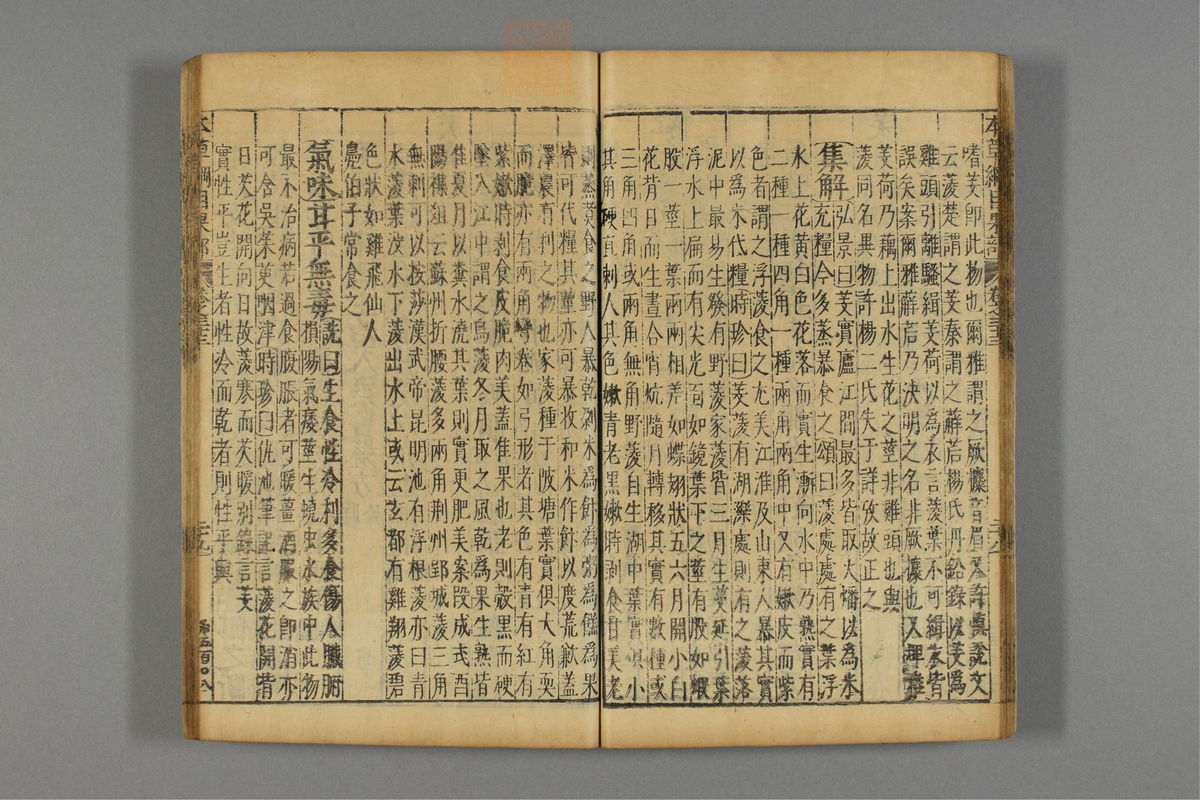 本草綱目果部
嗜芰即此物也爾雅謂之厥攗音眉又許慎說文
云蔆楚謂之芰秦謂之薢茩楊氏丹鉛錄以芰爲
雞頭引離騷緝芰荷以爲衣言菱葉不可緝衣皆
誤矣案爾雅薢茩乃決明之名非厥攗也又埤雅
芰荷乃藕上出水生花之莖非雞頭也與
菱同名異物許楊二氏失于詳攷故正之
集解弘景曰芰實廬江間最多皆取火燔以爲米
充糧今多蒸暴食之頌曰菱處處有之葉浮
水上花黃白色花落而實生漸向水中乃熟實有
二種一種四角一種兩角兩角中又有嫩皮而紫
色者謂之浮菱食之尤美江淮及山東人暴其實
以爲米代糧時珍曰芰菱有湖濼處則有之菱落
泥中最易生發有野菱家菱皆三月生蔓延引葉
浮水上扁而有尖光面如鏡葉下之莖有股如蝦
股一莖一葉兩兩相差如蝶翅狀五六月開小白
花背日而生晝合宵炕隨月轉移其實有數種或
三角四角或兩角無角野菱自生湖中葉實俱小
其角硬直刺人其色嫩青老黑嫩時剝食甘美老
則蒸煑食之野人暴乾剁米爲飰爲粥爲餻爲果
皆可代糧其莖亦可暴收和米作飰以度荒歉蓋
澤農有利之物也家菱種于陂塘葉實俱大角耎
而脆亦有兩角彎卷如弓形者其色有青有紅有
紫嫩時剝食皮脆肉美蓋佳果也老則殼黑而硬
墜入江中謂之烏菱冬月取之風乾爲果生熟皆
佳夏月以糞水澆其葉則實更肥美案段成式酉
陽襍俎云蘇州折腰菱多兩角荆州郢城菱三角
無刺可以按莎漢武帝昆明池有浮根菱亦曰青
水菱葉沒水下菱出水上或云玄都有雞翔菱碧
色狀如雞飛仙人
鳧伯子常食之
氣味甘平無毒詵曰生食性冷利多食傷人臟腑
損陽氣痿莖生蟯虫水族中此物
最不治病若過食腹脹者可暖薑酒服之即消亦
可含吳茱萸嚥津時珍曰仇池筆記言菱花開背
日芡花開向日故菱寒而芡暖別錄言芰
實性平豈生者性冷而乾者則性平與
本草綱目果部